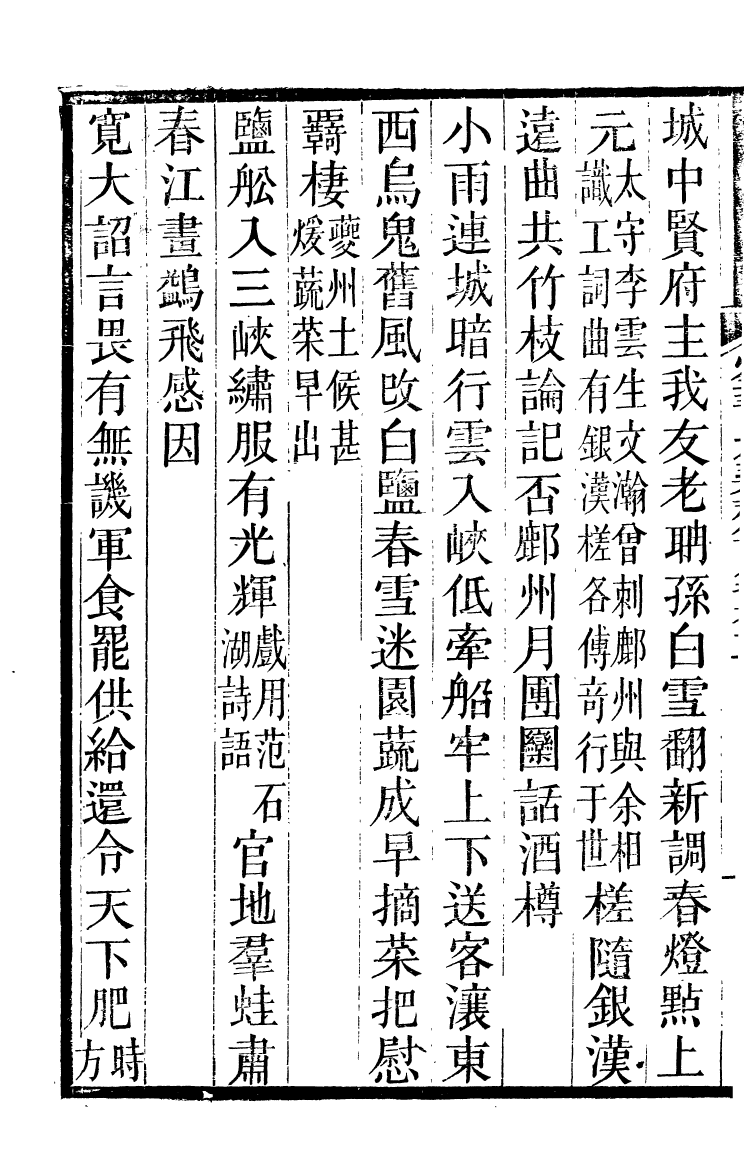 城中賢府主我友老聃孫白雪翻新調春燈點上
元太守李雲生文瀚曾刺鄜州與余相識工詞曲有銀漢槎各傳奇行于世槎隨銀漢
遠曲共竹枝論記否鄜州月團圞話酒樽
小雨連城暗行雲入峽低牽船牢上下送客瀼東
西烏鬼舊風改白鹽春雪迷園蔬成早摘菜把慰
羇棲夔州土候甚煖蔬菜早出
鹽舩入三峽繡服有光輝戲用范石湖詩語官地羣蛙肅
春江畫鷁飛感因
寬大詔言畏有無譏軍食罷供給還令天下肥時方